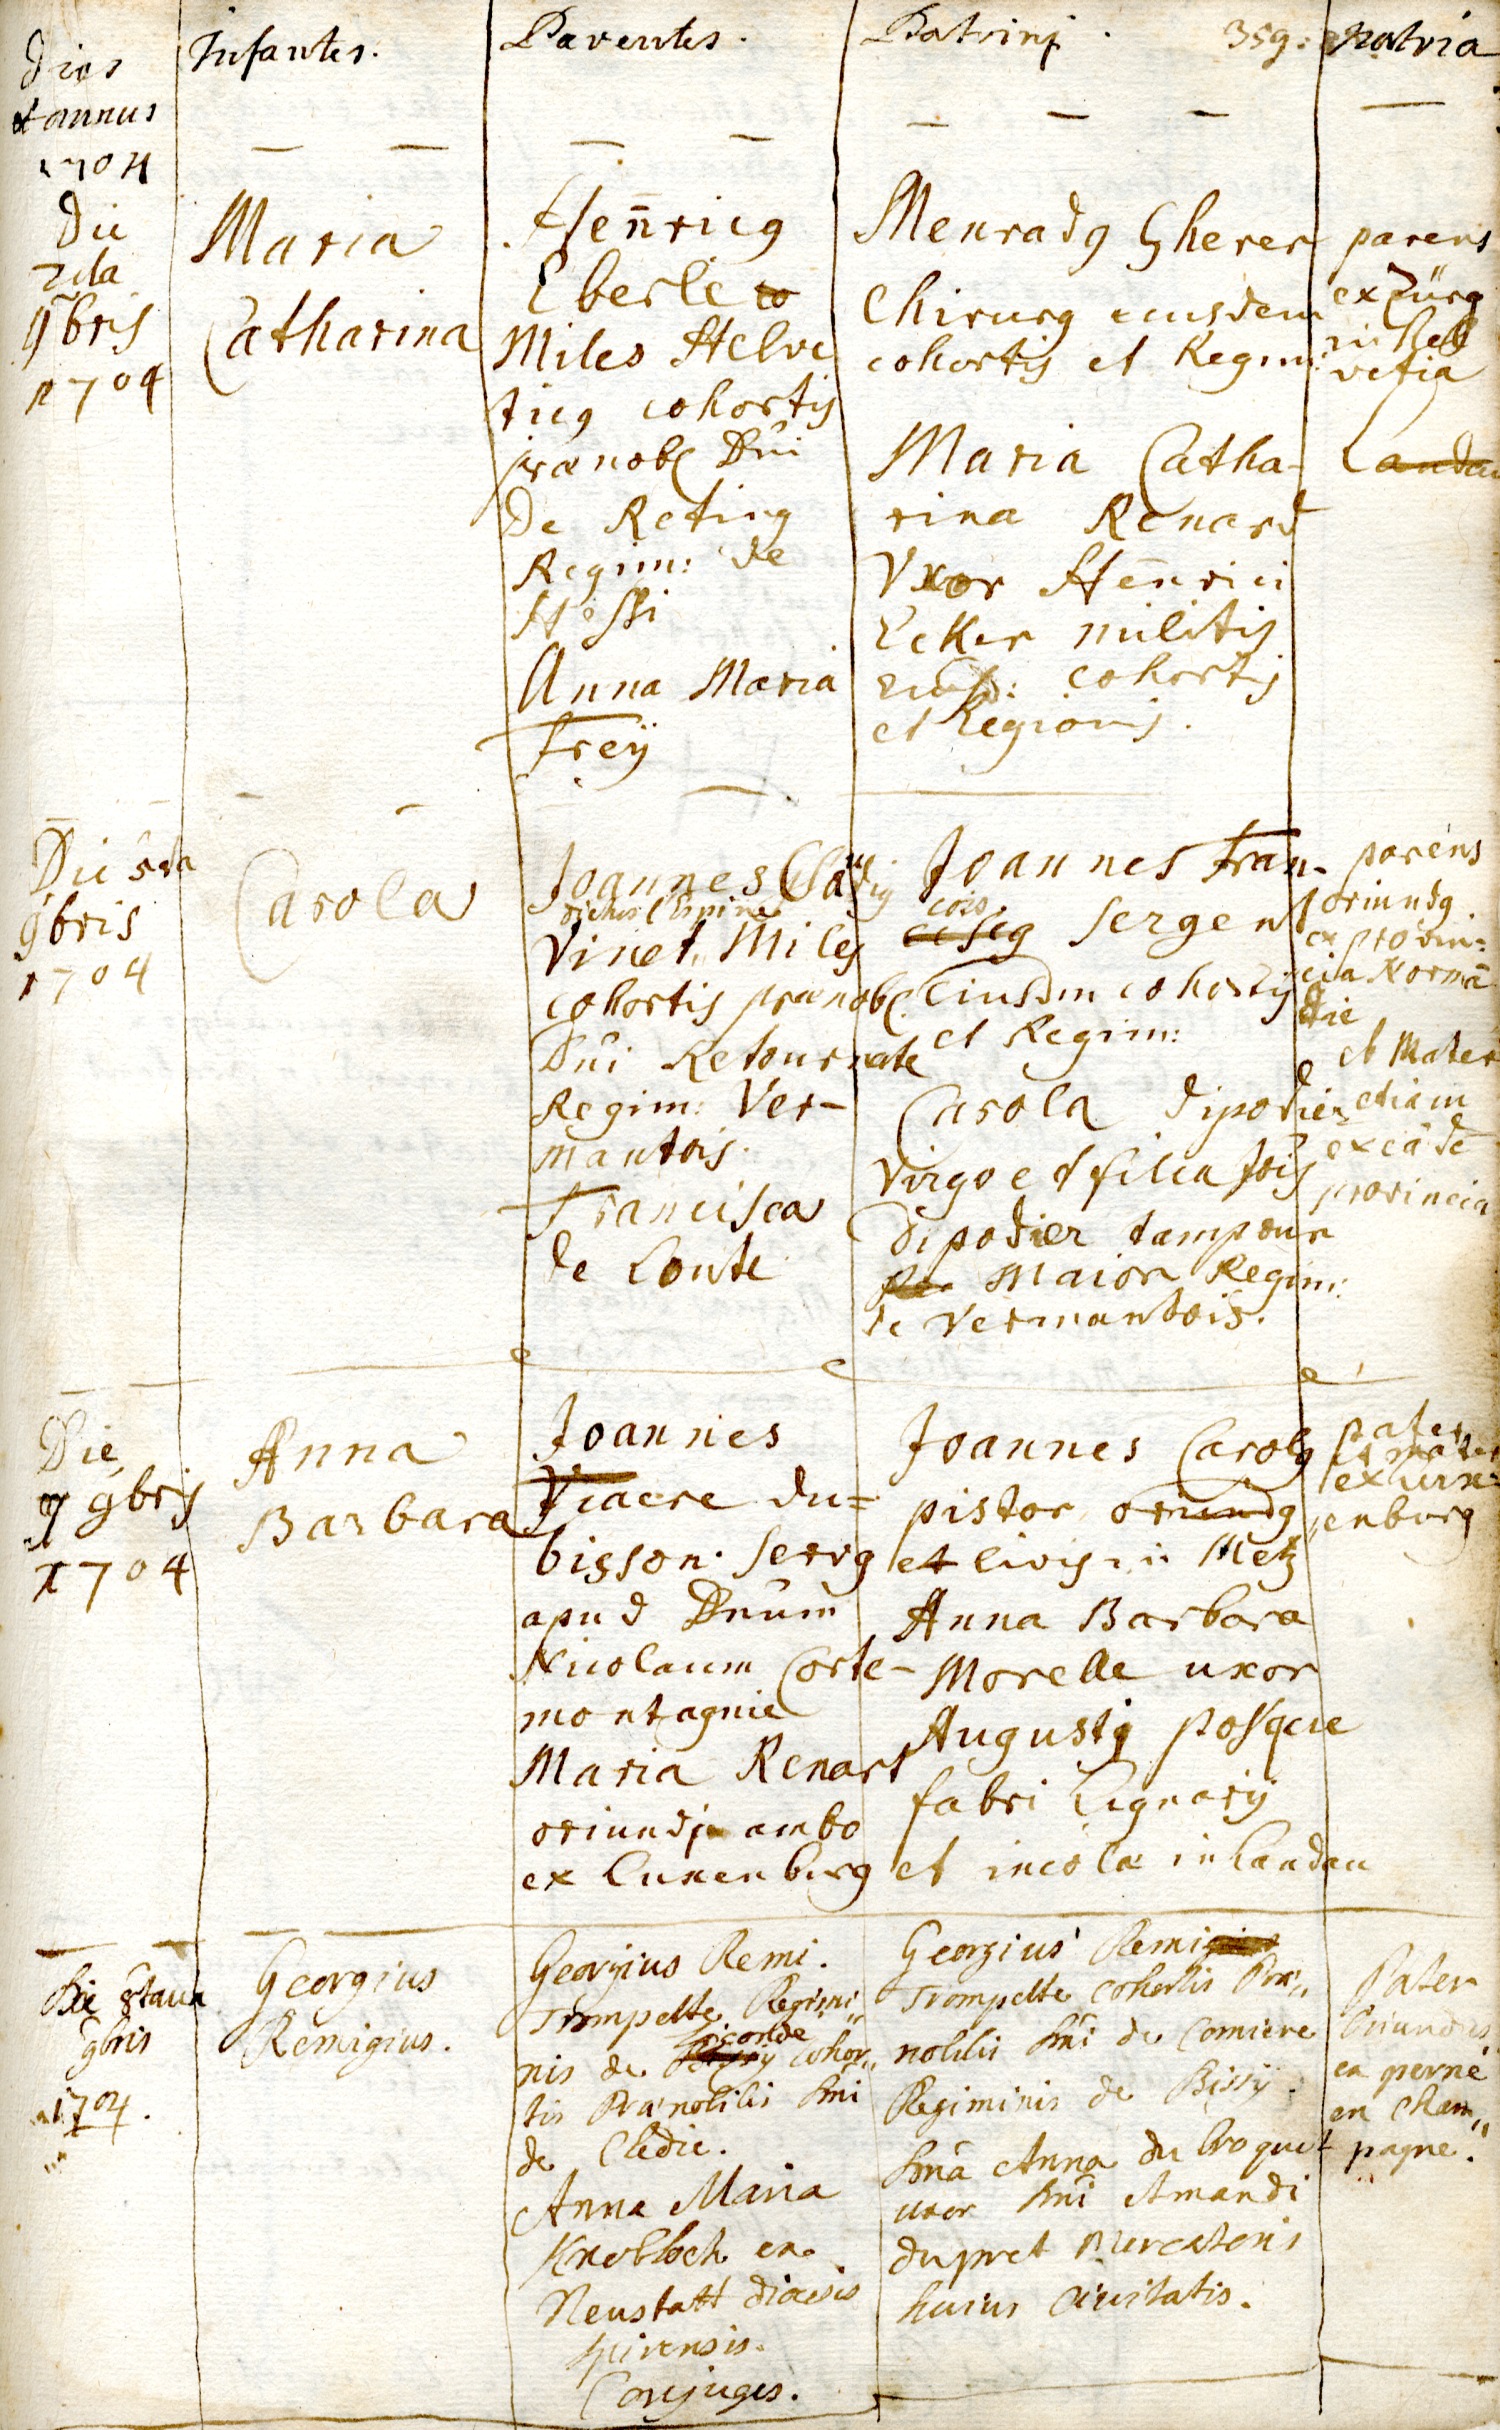 Dies
et annus
1704
Infantes.
Parentes.
Patrini. 359:
Patria
Die
2da
9bris
1704
Maria
Catharina
Henricg
Eberle
Miles Helve
ticg cohortis
prænob Dni
De Reting
Regim: de
Hessi
Anna Maria
Freÿ
Menradg Gherer
Chirurg eiusdem
cohortis et Regim:
Maria Catha-
rina Renard
Vxor Henrici
Ecker militis
eiusd: cohortis
et Regionis.
parens
ex Zürg
in Hel
vetia
Landau
Die 5ta
9bris
1704
Carola
Joannes Claudig
dictus l'Epine
Vinet. Miles
cohortis prænob.
Dni Retournate
Regim: Ver-
mantois.
Francisca
de Conte
Joannes Fran-
cois
Sergent
Eiusdm cohortis
et Regim:
Carola dipodier
Virgo et filia Jois
Dipodier tampour
Maior Regim:
de Vermantois.
parens
oriundg
ex provin=
cia Normā
die
et Mater
etiam
ex eâdē
provincia
Die
7 9bris
1704
Anna
Barbara
Joannes
Fiacre du=
bisson. Servg
apud Dnum
Nicolaum Corte-
montagnie
Maria Renart
oriundi ambo
ex Luxenburg
Joannes Carolg
pistor oriundg
et Civis in Metz
Anna Barbara
Morelle uxor
Augusti posque
fabri Lignarij
et incolæ in Landau
pater
et mater
ex Lux=
enburg
Die 8taua
9bris
1704.
Georgius
Remigius.
Georgius Remi.
Trompette Regimi"
nis de cohor"
tis Prænobilis Dni
de Cledie.
Anna Maria
Knobloch ex
Neustatt diœsis
spirensis.
Conjuges.
Georgius Remi
Trompette cohortis Præ"
nobilis Dni de Comiere
Regiminis de Bissÿ.
Dna Anna du Croquet
uxor Dni Amandi
dupret Mercatoris
huius Civitatis.
Pater
Oriundus
ex perne
en Cham"
pagne.